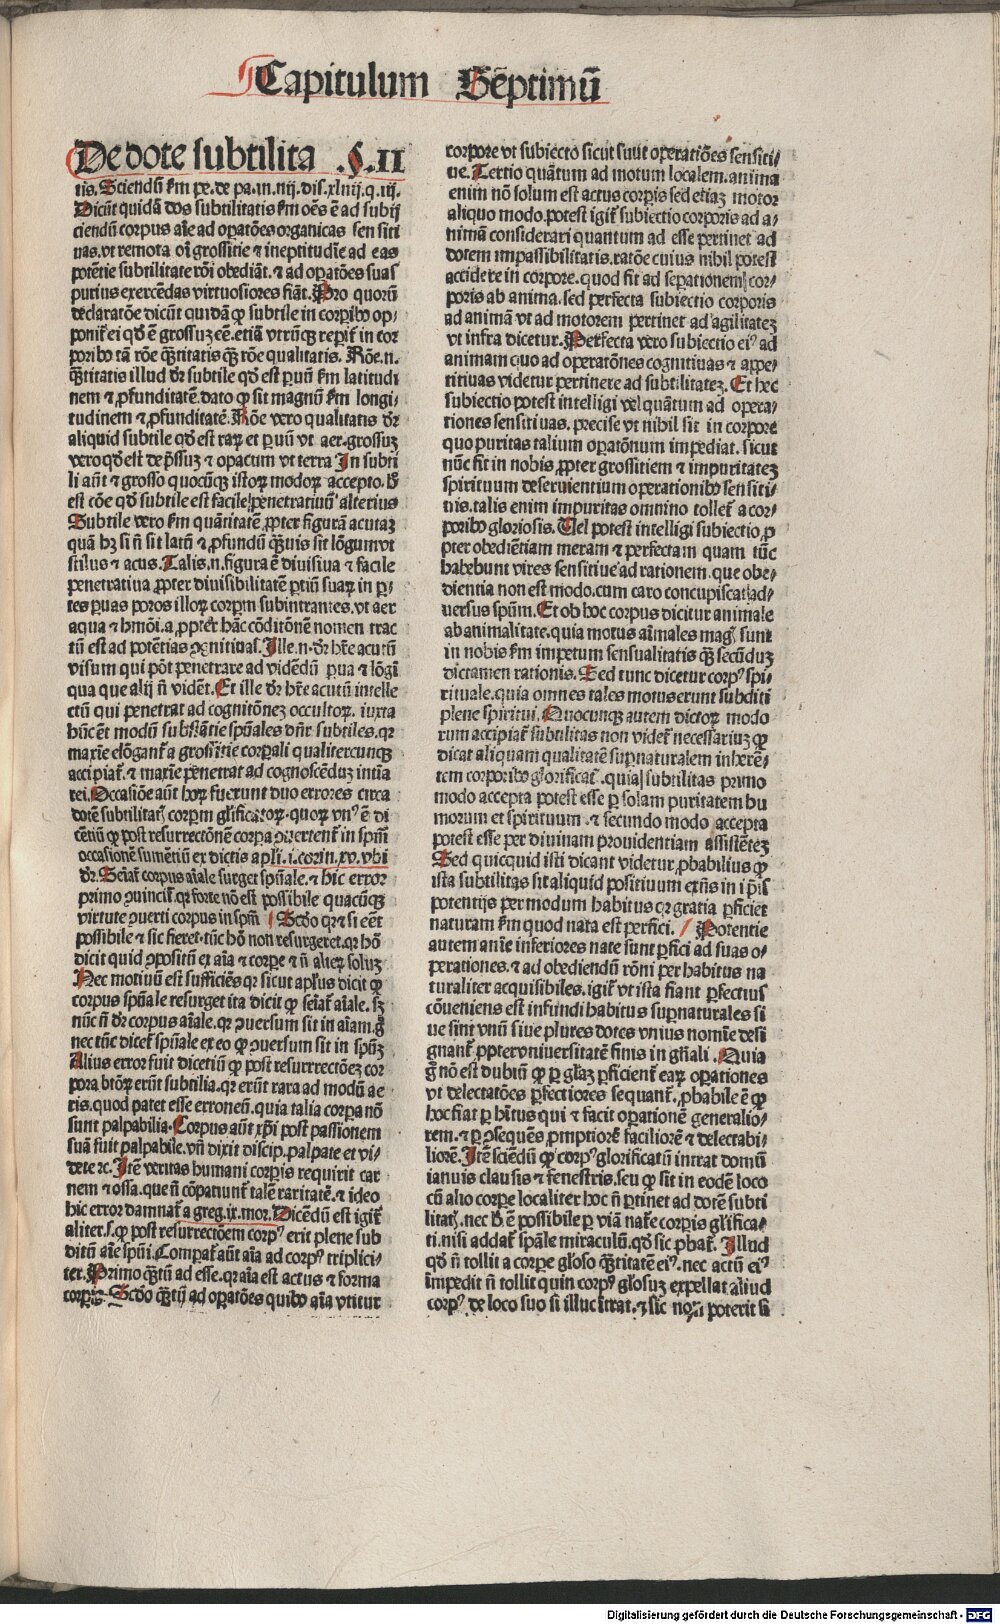 Capitulum Septimũ
De dote subtilita .§.II
tis. Sciendũ ẜm pe. de pa. in .iiij. dis. xliiij. q. iij.
Dicũt quidã dos subtilitatis ẜm oẽs ẽ ad subij
ciendũ corpus aĩe ad oꝑatões organicas sensiti
uas. vt remota oĩ grossitie ⁊ ineptitudĩe ad eas
potẽtie subtilitate rõi obediãt. ⁊ ad oꝑatões suas
purius exercẽdas virtuosiores fiãt. Pro quorũ
declaratõe dicũt quidã ꝙ subtile in corꝑibꝰ op-
ponit᷑ ei qd̓ ẽ grossuz eẽ. etiã vtrũqꝫ reperit᷑ in cor
poribꝰ tã rõe q̃titatis q̃ꝫ rõe qualitatis. Rõe .n.
q̃titatis illud dr̃ subtile qd̓ est paruũ ẜm latitudi
nem ⁊ ꝓfunditatẽ. dato ꝙ sit magnũ ẜm longi-
tudinem ⁊ ꝓfunditatẽ. Rõe vero qualitatis dr̃
aliquid subtile qd̓ est rarꝫ et puũ vt aer. grossuz
vero qd̓ est dẽpssuz ⁊ opacum vt terra In subti
li aũt ⁊ grosso quocũqꝫ istoꝝ modoꝝ accepto. h̓
est cõe qd̓ subtile est facile penetratiuũ alterius
Subtile vero ẜm quãtitatẽ ꝓpter figurã acutaꝫ
quã hꝫ si ñ sit latũ ⁊ ꝓfundũ q̃uis sit lõgum vt
stilus ⁊ acus. Talis .n. figura ẽ diuisiua ⁊ facile
penetratiua ꝓpter diuisibilitatẽ ꝑtiũ suaꝝ in ꝑ-
tes ꝑuas poros illoꝝ corꝑm subintrantes. vt aer
aqua ⁊ hmõi. a ꝓpter hãc cõditõnẽ nomen trac
tũ est ad potẽtias ꝯgnitiuas. Ille .n. dr̃ hr̃e acutũ
visum qui põt penetrare ad vidẽdũ ꝑua ⁊ lõgĩ
qua que alij ñ vidẽt. Et ille dr̃ hr̃e acutũ intelle
ctũ qui penetrat ad cognitõnez occultoꝝ. iuxta
hũc ẽt modũ substãtie spũales dñr subtiles. qꝛ
maxĩe elõgant᷑ a grossitie corꝑali qualitercunqꝫ
accipiat᷑. ⁊ maxĩe penetrat ad cognoscẽduz intĩa
rei. Occasiõe aũt hoꝝ fuerunt duo errores circa
dotẽ subtilitatꝭ corꝑm gl̃ificatoꝝ. quoꝝ vnꝰ ẽ di
cẽtiũ ꝙ post resurrectõnẽ corpa ꝯuertent᷑ in spm̃
occasionẽ sumẽtiũ ex dictis apl̃i. i. corin. xv. vbi
dr̃. Seĩat᷑ corpus aĩale surget spũale. ⁊ hic error
primo ꝯuincit᷑. qꝛ forte nõ est possibile quacũqꝫ
virtute ꝯuerti corpus in spm̃ Scdo qꝛ ⁊ si eẽt
possibile ⁊ sic fieret. tũc hõ non resurgeret. qꝛ hõ
dicit quid ꝯpositũ ex aĩa ⁊ corpe ⁊ ñ alterꝝ soluz
Nec motiuũ est sufficiẽs qꝛ sicut apl̃us dicit ꝙ
corpus spũale resurget ita dicit ꝙ seĩat᷑ aĩale. sꝫ
nũc ñ dr̃ corpus aĩale. qꝛ ꝯuersum sit in aĩam. g̃
nec tũc dicet᷑ spũale ex eo ꝙ ꝯuersum sit in spũꝫ
Alius error fuit dicẽtiũ ꝙ post resurrrectõez cor
pora btõꝝ erũt subtilia. qꝛ erũt rara ad modũ ae
ris. quod patet esse erroneũ. quia talia corpa nõ
sunt palpabilia. Corpus aũt xp̃i post passionem
suã fuit palpabile. vñ dixit discip. palpate et vi-
dete ⁊c. Itẽ veritas humani corpis requirit car
nem ⁊ ossa. que ñ cõpatiunt᷑ talẽ raritatẽ. ⁊ ideo
hic error damnat᷑ a greg. ix. mor. Dicẽdũ est igit᷑
aliter .s. ꝙ post resurrectiõem corpꝰ erit plene sub
ditũ aĩe spũi. Comparat᷑ aũt aĩa ad corpꝰ triplici-
ter. Primo q̃tũ ad esse. qꝛ aĩa est actus ⁊ forma
corpis. Scdo q̃tũ ad oꝑatões quibꝰ aĩa vtitur
corpore vt subiecto sicut sunt operatiões sensiti-
ue. Tertio quãtum ad motum localem. anima
enim nõ solum est actus corpis sed etiaz motor
aliquo modo. potest igit᷑ subiectio corporis ad a-
nimã considerari quantum ad esse pertinet ad
dotem impassibilitatis. ratõe cuius nihil potest
accidere in corpore. quod fit ad sepationem cor-
poris ab anima. sed perfecta subiectio corporis
ad animã vt ad motorem pertinet ad agilitatez
vt infra dicetur. Perfecta vero subiectio eiꝰ ad
animam quo ad operatõnes cognitiuas ⁊ appe-
titiuas videtur pertinere ad subtilitatez. Et hec
subiectio potest intelligi vel quãtum ad opera-
tiones sensitiuas. precise vt nihil sit in corpore
quo puritas talium opatõnum impediat. sicut
nũc fit in nobis ꝓpter grossitiem ⁊ impuritatez
spirituum deseruientium operationibꝰ sensiti-
uis. talis enim impuritas omnino tollet᷑ a cor-
poribꝰ gloriosis. Uel potest intelligi subiectio ꝓ
pter obediẽtiam meram ⁊ perfectam quam tũc
habebunt vires sensitiue ad rationem. que obe-
dientia non est modo. cum caro concupiscat ad-
uersus spũm. Et ob hoc corpus dicitur animale
ab animalitate. quia motus aĩmales magꝭ sunt
in nobis ẜm impetum sensualitatis q̃ꝫ secũduꝫ
dictamen rationis. Sed tunc dicetur corpꝰ spi-
rituale. quia omnes tales motus erunt subditi
plene spiritui. Quocunqꝫ autem dictoꝝ modo
rum accipiat᷑ subtilitas non videt᷑ necessariuz ꝙ
dicat aliquam qualitatẽ supnaturalem inherẽ-
tem corporibꝰ glorificat᷑. quia subtilitas primo
modo accepta potest esse ꝑ solam puritatem hu
morum et spirituum. ⁊ secundo modo accepta
potest esse per diuinam prouidentiam assistẽtez
Sed quicquid isti dicant videtur ꝓbabilius ꝙ
ista subtilitas sit aliquid positiuum exñs in ip̃is
potentijs per modum habitus qꝛ gratia ꝑficiet
naturam ẜm quod nata est perfici. Potentie
autem anĩe inferiores nate sunt ꝑfici ad suas o-
perationes. ⁊ ad obediendũ rõni per habitus na
turaliter acquisibiles. igit᷑ vt ista fiant ꝑfectius
cõueniens est infundi habitus supnaturales si
ue sint vnũ siue plures dotes vnius nomĩe desi
gnant᷑ ꝓpter vniuersitatẽ finis in gñali. Quia
g̃ nõ est dubiũ ꝙ ꝑ gl̃aꝫ ꝑficient᷑ eaꝝ oꝑationes
vt delectatões ꝑfectiores sequant᷑. ꝓbabile ẽ ꝙ
hoc fiat ꝑ hĩtus qui ⁊ facit oꝑationẽ generalio-
rem. ⁊ ꝑ ꝯsequẽs ꝓmptiorẽ faciliorẽ ⁊ delectabi-
liorẽ. Itẽ sciẽdũ ꝙ corpꝰ glorificatũ intrat domũ
ianuis clausis ⁊ fenestris. seu ꝙ sit in eodẽ loco
cũ alio corpe localiter hoc ñ ꝑtinet ad dotẽ subti
litatꝭ. nec h̓ ẽ possibile ꝑ viã nat᷑e corpis gl̃ifica-
ti. nisi addat᷑ spãle miraculũ. qd̓ sic ꝓbat᷑. Illud
qd̓ ñ tollit a corpe gl̃oso q̃titatẽ eiꝰ. nec actũ eiꝰ
ĩmpedit ñ tollit quin corpꝰ gl̃osuz expellat aliud
corpꝰ de loco suo si illuc ĩtrat. ⁊ sic non poterit si
Digitalisierung gefördert durch die Deutsche Forschungsgemeinschaft - DFG